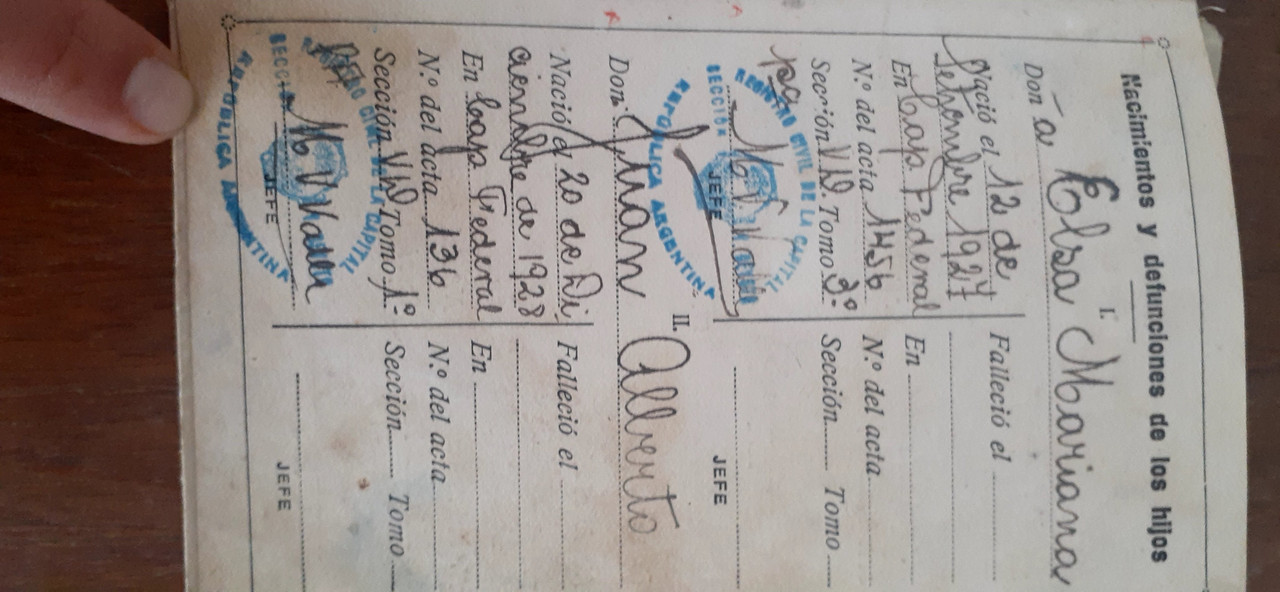 Nacimientos y defunciones de los hijos
I.
Don a Elsa Mariana
Nació el 12 de
Setiembre 1927
En Cap. Federal
N.º del acta 1456
Sección VII. Tomo 3º
Falleció el
En
N.º del acta
Sección Tomo
JEFE
JEFE
REGISTRO CIVIL DE LA CAPITAL
SECCIÓN
REPÚBLICA ARGENTINA
II.
Don Juan Alberto
Nació el 20 de Di
ciembre de 1928
En Cap. Federal
N.º del acta 136
Sección VII Tomo 1º
Falleció el
En
N.º del acta
Sección Tomo
JEFE
JEFE
REGISTRO CIVIL DE LA CAPITAL
SECCIÓN
REPÚBLICA ARGENTINA